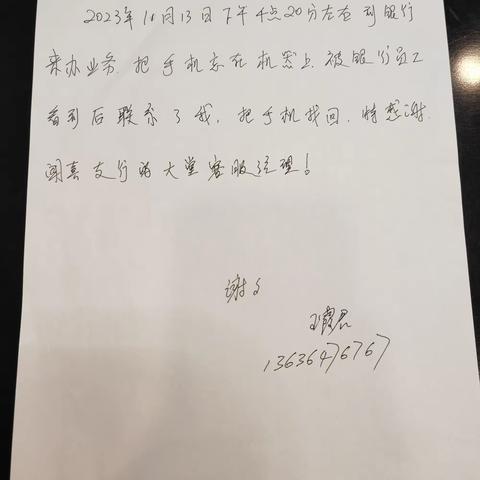 2023年10月13日下午4点20分左右到银行
来办业务.把手机忘在机器上.被银行员工
看到后联系了我,把手机找回.特感谢
闻喜支行的大堂客服经理!
谢谢
王霞君
13636476767